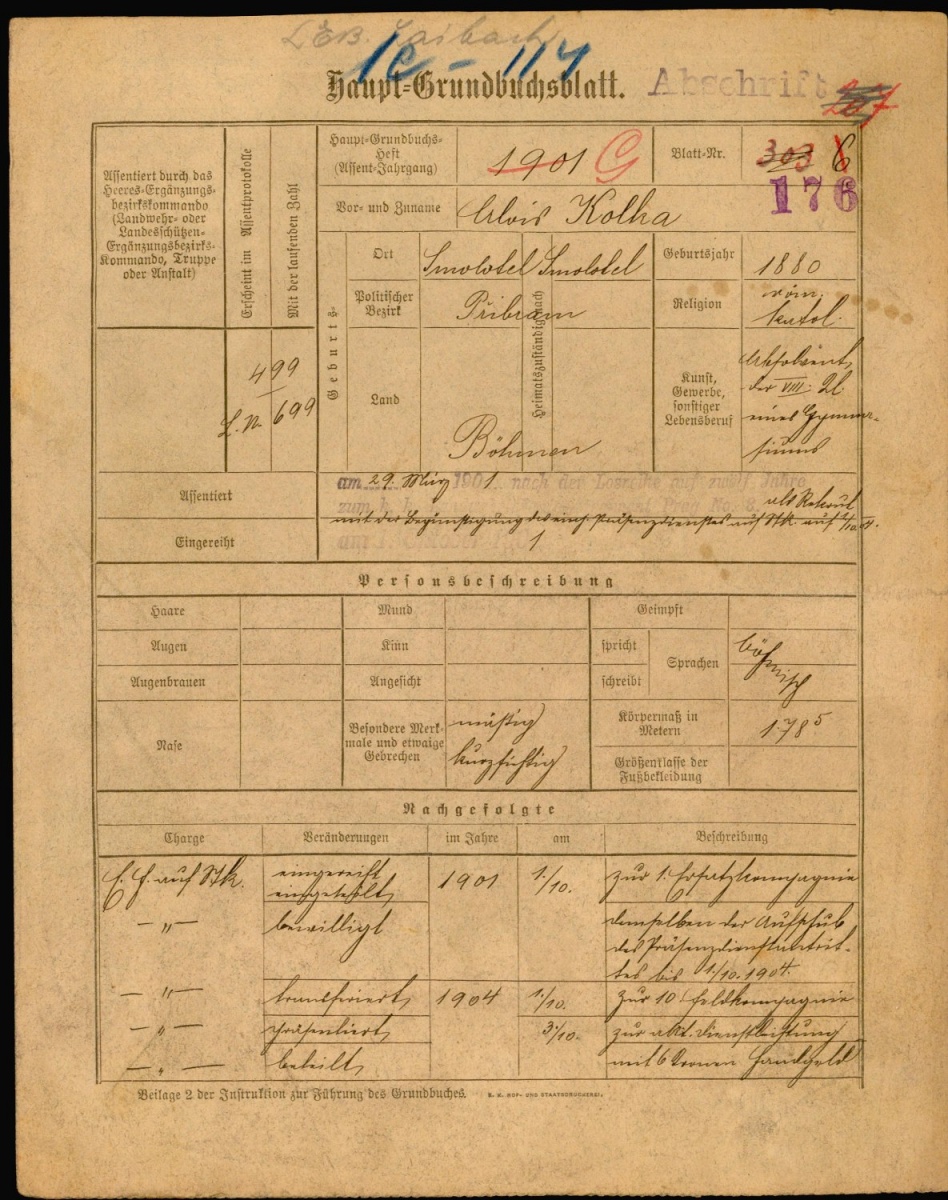 LEB. Laibach
1c - 114
Haupt-Grundbuchsblatt.
Abschrift
267
Assentiert durch das
Heeres-Ergänzungs-
bezirkskommando
(Landwehr- oder
Landesschützen-
Ergänzungsbezirks-
Kommando, Truppe
oder Anstalt)
Erscheint im Assentprotokolle
Mit der laufenden Zahl
499
L. N. 699
Haupt-Grundbuchs-
Heft
(Assent-Jahrgang)
1901 G
Blatt-Nr.
303 6
176
Vor- und Zuname
Alois Kolha
Geburts-
Ort
Smolotel
Heimatszuständig nach
Smolotel
Geburtsjahr
1880
Politischer
Bezirk
Přibram
Religion
röm.
katol.
Land
Böhmen
Kunst,
Gewerbe,
sonstiger
Lebensberuf
Absolvent
der VIII. Kl
eines Gymna-
siums
Assentiert
am 29. März 1901 nach der Losreihe auf zwölf Jahre
als Rekrut
mit der Begünstigung des einj. Präsenzdienstes auf Stk. auf
Eingereiht
Personsbeschreibung
Haare
Mund
Geimpft
Augen
Kinn
spricht
Sprachen
böhmisch
Augenbrauen
Angesicht
schreibt
Nase
Besondere Merk-
male und etwaige
Gebrechen
mäßig
kurzsichtig
Körpermaß in
Metern
1·78⁵
Größenklasse der
Fußbekleidung
Nachgefolgte
Charge
Veränderungen
im Jahre
am
Beschreibung
E. F. auf Stk.
eingereiht
eingeteilt
1901
1/10.
zur 1. Ersatzkompagnie
—〃—
bewilligt
demselben der Aufschub
des Präsenzdienstantrit-
tes bis 1/10. 1904.
—〃—
transferiert
1904
1/10.
zur 10. Feldkompagnie
—〃—
präsentiert
3/10.
zur akt. Dienstleistung
—〃—
beteilt
mit 6 Kronen Handgeld
Beilage 2 der Instruktion zur Führung des Grundbuches.
K. K. HOF- UND STAATSDRUCKEREI.